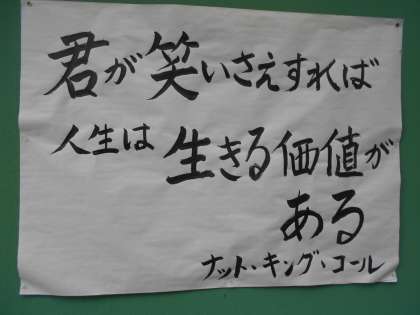 君が笑いさえすれば
人生は生きる価値が
ある
ナット・キング・コール